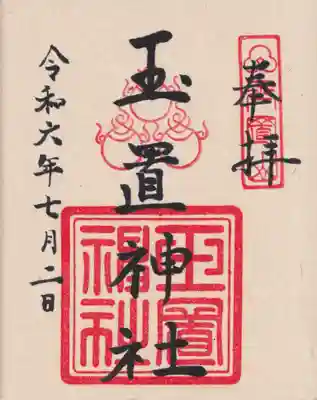 奉拝
玉置神社
玉置神社
令和六年七月二日